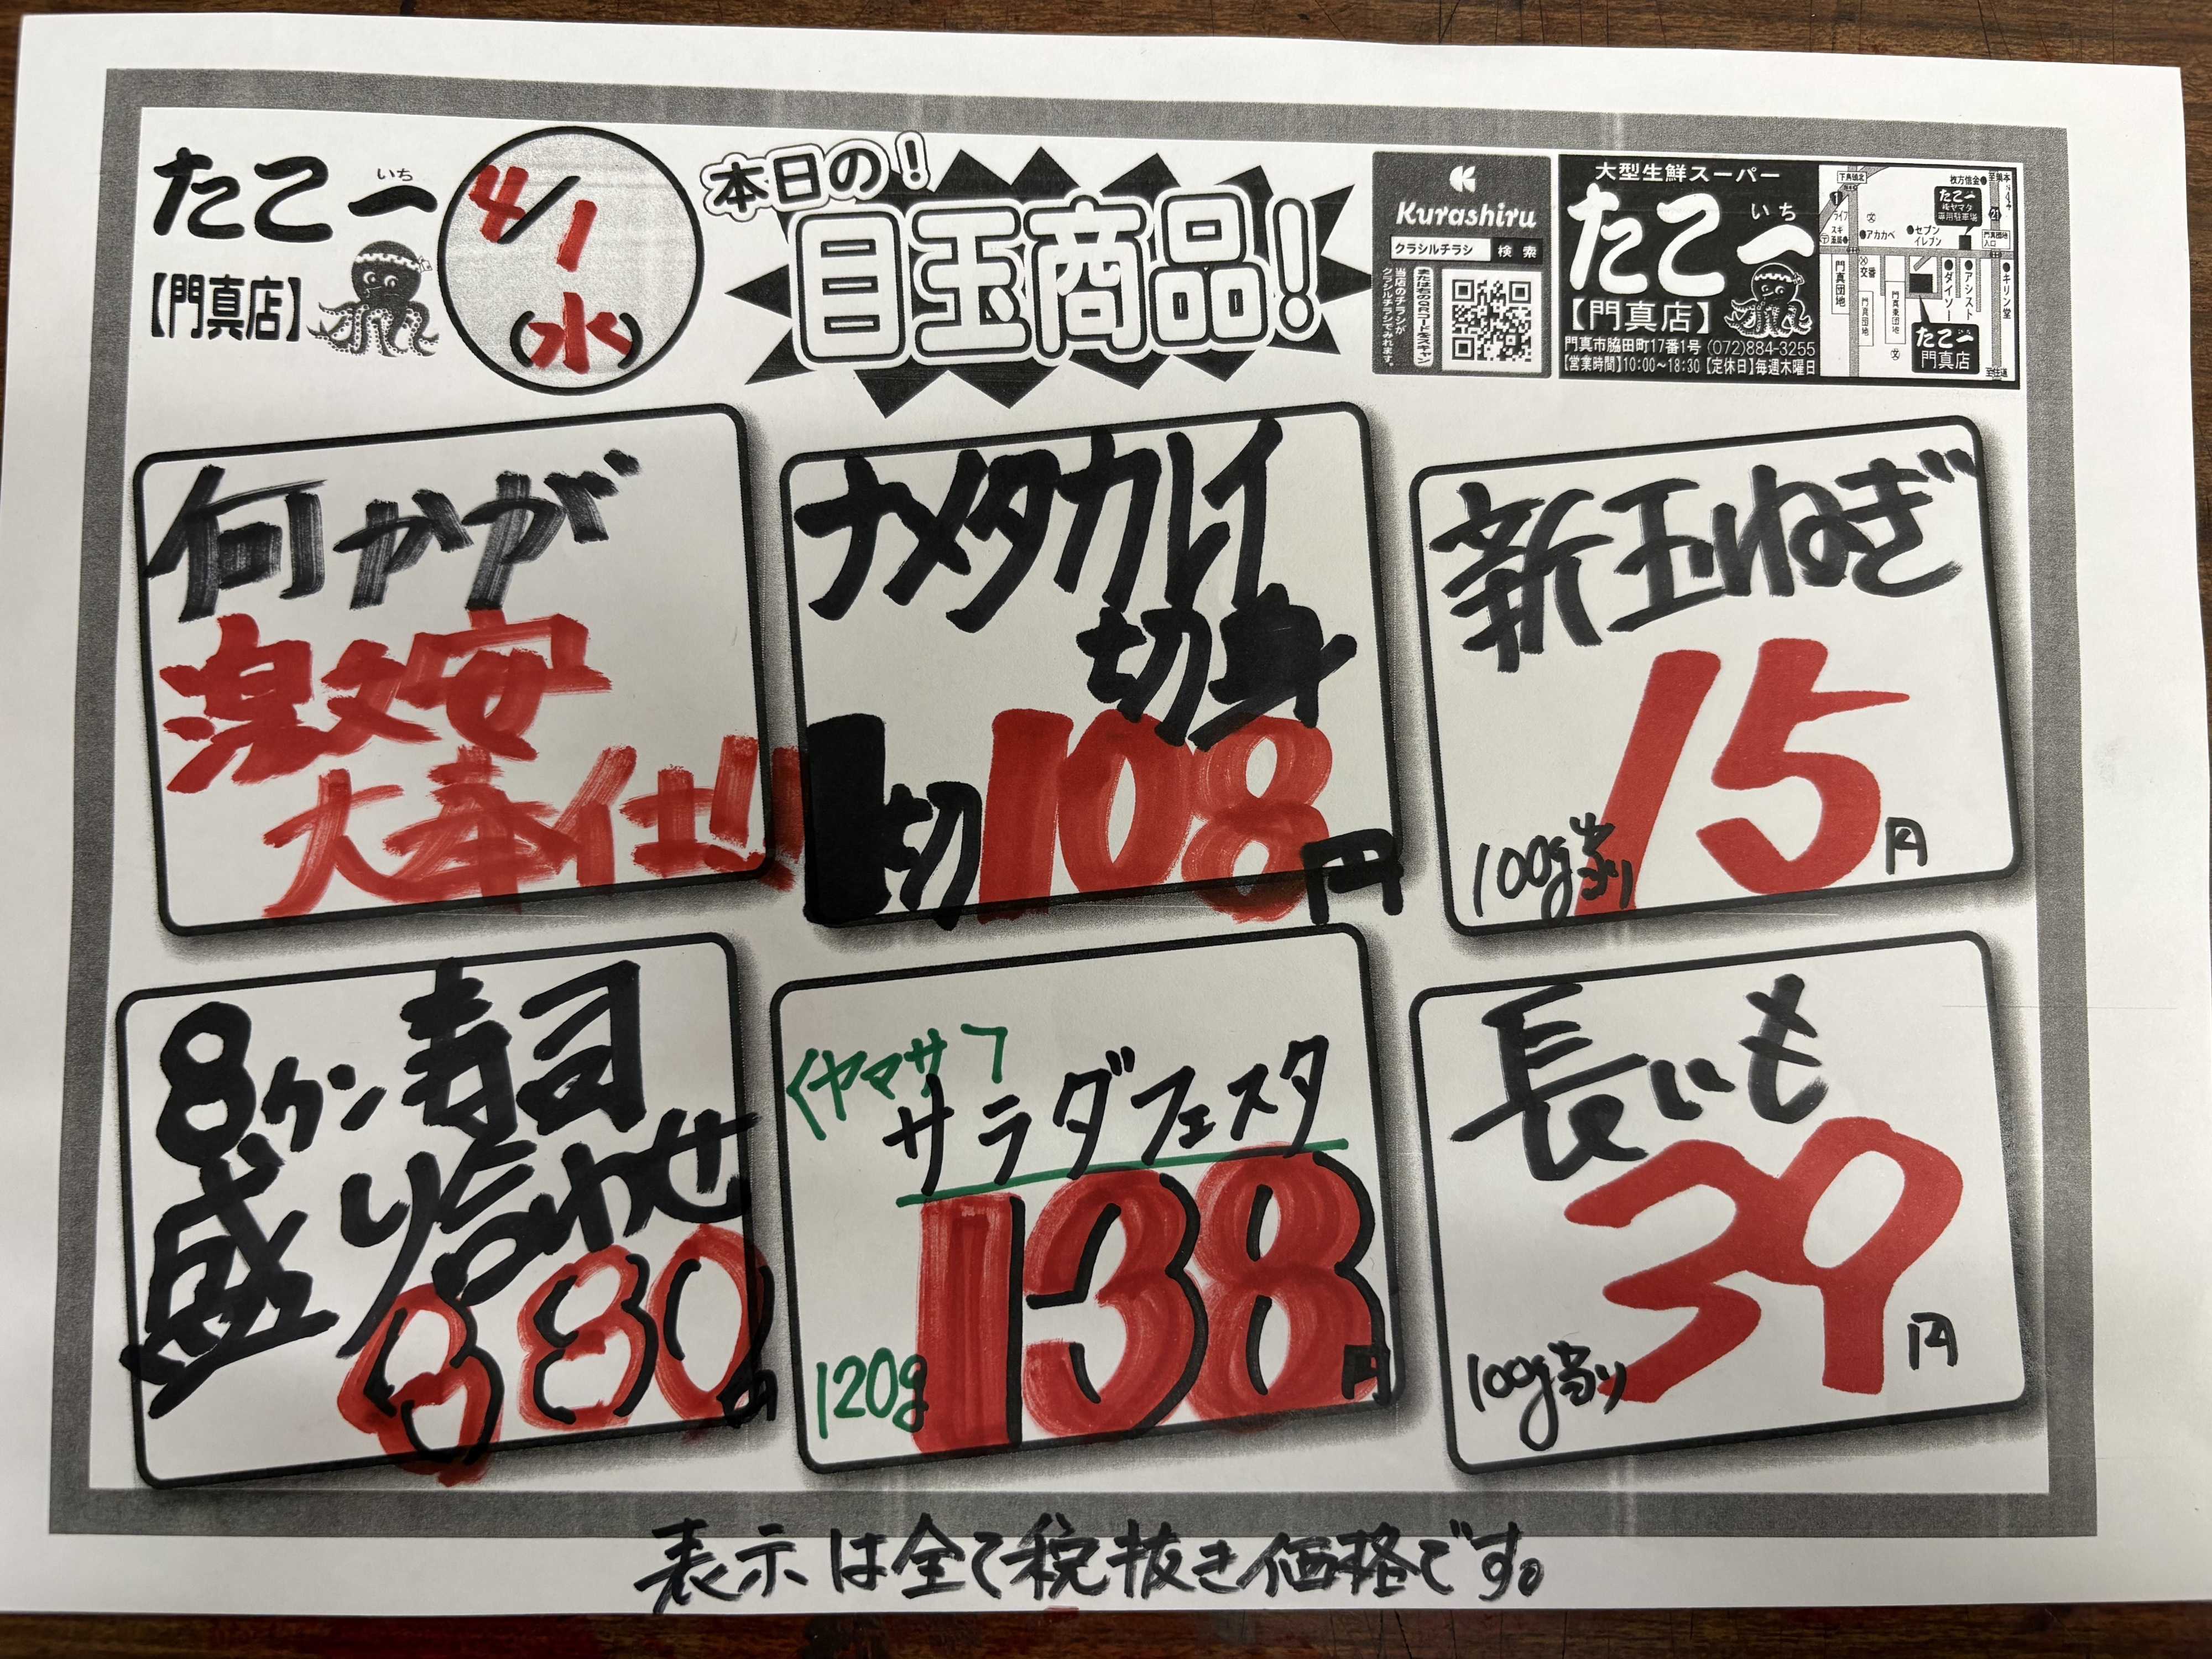 たこ一
いち
【門真店】
4/1
(水)
本日の!
目玉商品!
Kurashiru
クラシルチラシ 検索
または右のQRコードをスキャン
当店のチラシが
クラシルチラシでみれます。
大型生鮮スーパー
たこ一
いち
【門真店】
門真市脇田町17番1号 (072)884-3255
【営業時間】10:00〜18:30【定休日】毎週木曜日
枚方信金
ライフ
アカカベ
セブン
イレブン
交番
門真団地
ダイソー
アシスト
キリン堂
たこ一
門真店
何かが
激安
大奉仕!!
ナメタカレイ
切身
1切108円
新玉ねぎ
100g当り
15円
8ケン寿司
盛り合わせ
880円
〈ヤマサ〉
サラダフェスタ
120g
138円
長いも
100g当り
39円
表示は全て税抜き価格です。